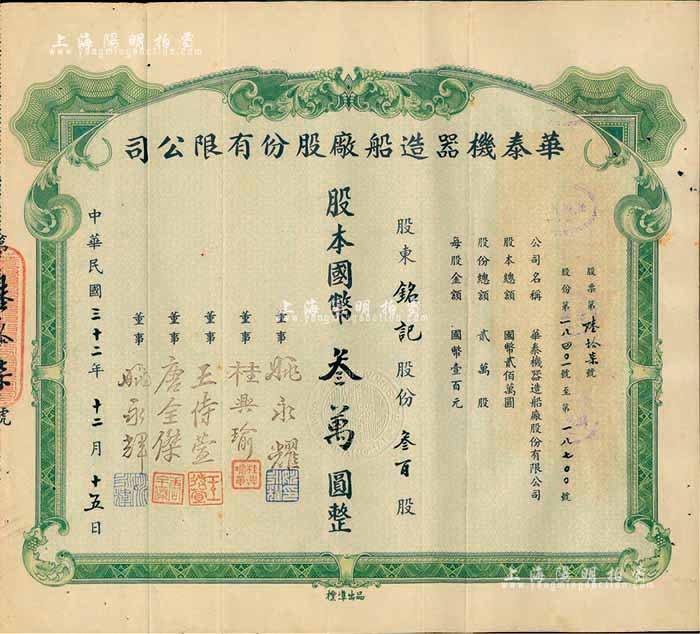 上海陽明拍賣
www.yangmingauction.com
華泰機器造船廠股份有限公司
股票第陸拾柒號
股份第一八四〇一號至第一八七〇〇號
公司名稱 華泰機器造船廠股份有限公司
股本總額 國幣貳佰萬圓
股份總額 貳萬股
每股金額 國幣壹百元
股東 銘記 股份 叁百 股
股本國幣 叁萬 圓整
董事 姚永耀
董事 桂興瑜
董事 王侍萱
董事 唐全傑
董事 姚永輝
中華民國三十二年十二月十五日
號
標準出品
上海陽明拍賣
www.yangmingauction.com